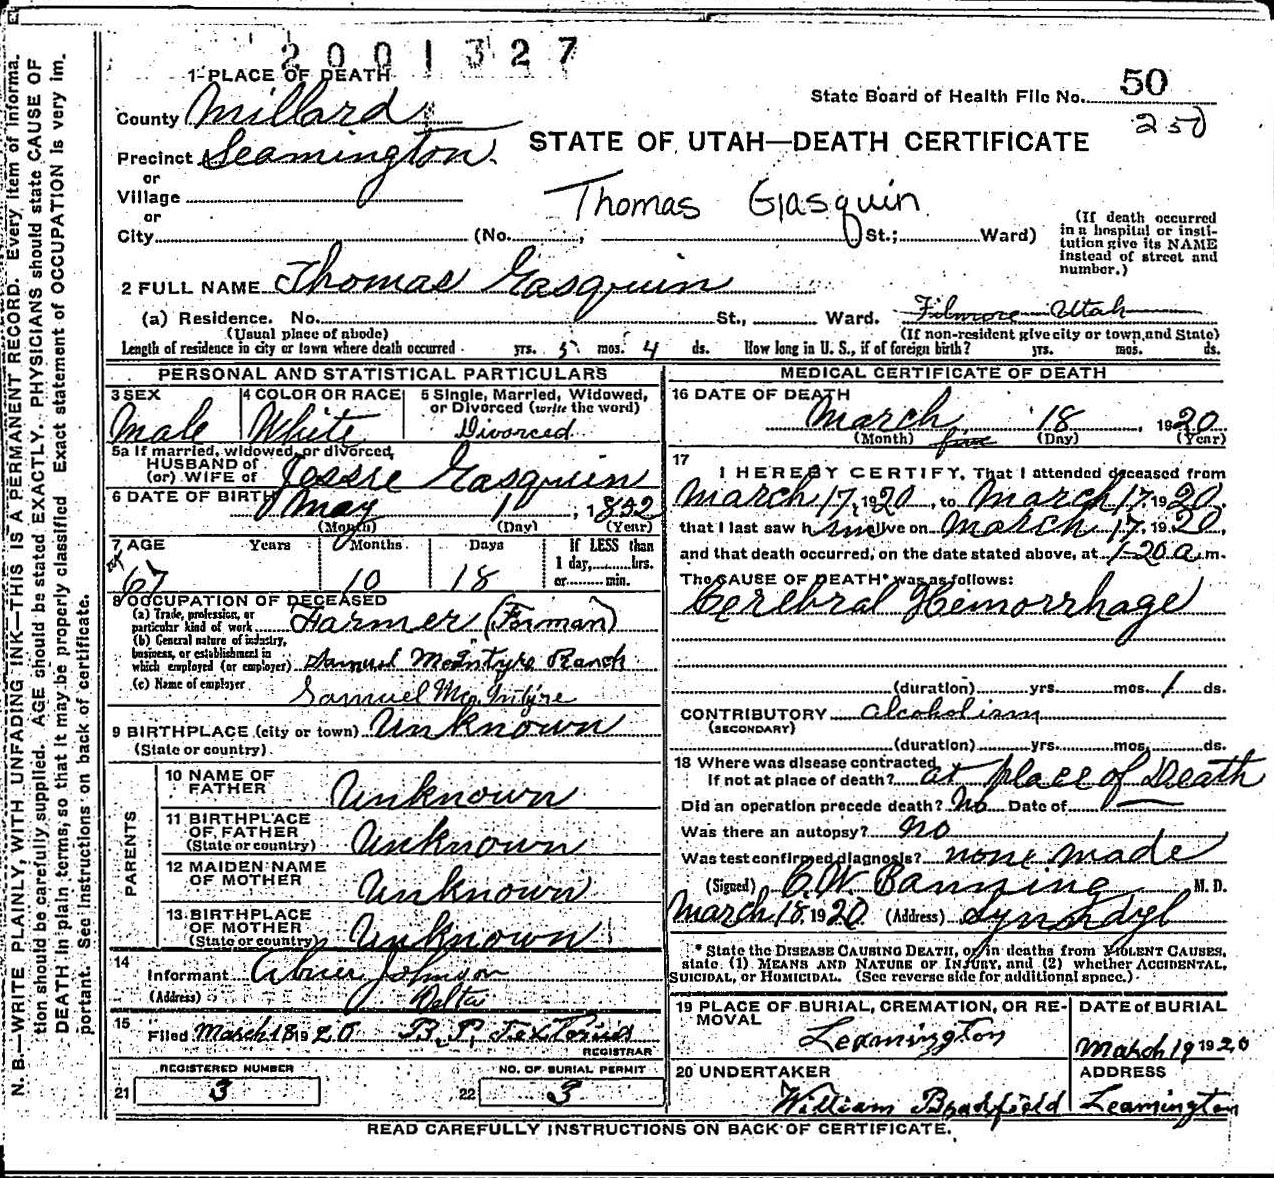 2001327
1-PLACE OF DEATH
State Board of Health File No. 50
250
County Millard
STATE OF UTAH—DEATH CERTIFICATE
Precinct Leamington
or
Village
Thomas Gasquin
or
City (No. , St.; Ward)
(If death occurred
in a hospital or insti-
tution give its NAME
instead of street and
number.)
2 FULL NAME Thomas Gasquin
(a) Residence. No. St., Ward. Filmore Utah
(Usual place of abode) (If non-resident give city or town, and State)
Length of residence in city or town where death occurred yrs. 5 mos. 4 ds. How long in U. S., if of foreign birth? yrs. mos. ds.
PERSONAL AND STATISTICAL PARTICULARS
3 SEX 4 COLOR OR RACE 5 Single, Married, Widowed,
or Divorced (write the word)
Male White Divorced
5a If married, widowed, or divorced
HUSBAND of
(or) WIFE of Jessie Gasquin
6 DATE OF BIRTH May 1, 1852
(Month) (Day) (Year)
7 AGE Years Months Days If LESS than
1 day, hrs.
or min.
67 10 18
8 OCCUPATION OF DECEASED
(a) Trade, profession, or
particular kind of work Farmer (Forman)
(b) General nature of industry,
business, or establishment in
which employed (or employer) Samuel McIntyre Ranch
(c) Name of employer Samuel McIntyre
9 BIRTHPLACE (city or town) Unknown
(State or country)
PARENTS
10 NAME OF
FATHER Unknown
11 BIRTHPLACE
OF FATHER
(State or country) Unknown
12 MAIDEN NAME
OF MOTHER Unknown
13 BIRTHPLACE
OF MOTHER
(State or country) Unknown
14
Informant Abner Johnson
(Address) Delta
15
Filed March 18 1920 B. P. Textorius
REGISTRAR
REGISTERED NUMBER NO. OF BURIAL PERMIT
21 3 22 3
MEDICAL CERTIFICATE OF DEATH
16 DATE OF DEATH
March 18, 1920
(Month) (Day) (Year)
17
I HEREBY CERTIFY, That I attended deceased from
March 17, 1920, to March 17, 1920,
that I last saw him alive on March 17, 1920,
and that death occurred, on the date stated above, at 1-20 a.m.
The CAUSE OF DEATH* was as follows:
Cerebral Hemorrhage
(duration) yrs. mos. 1 ds.
CONTRIBUTORY alcoholism
(SECONDARY)
(duration) yrs. mos. ds.
18 Where was disease contracted
If not at place of death? at place of Death
Did an operation precede death? No Date of
Was there an autopsy? no
Was test confirmed diagnosis? none made
(Signed) C. W. Banning M. D.
March 18, 1920 (Address) Lynndyl
* State the DISEASE CAUSING DEATH, or in deaths from VIOLENT CAUSES,
state (1) MEANS AND NATURE OF INJURY, and (2) whether ACCIDENTAL,
SUICIDAL, or HOMICIDAL. (See reverse side for additional space.)
19 PLACE OF BURIAL, CREMATION, OR RE-
MOVAL DATE of BURIAL
Leamington March 19 1920
20 UNDERTAKER ADDRESS
William Bradfield Leamington
READ CAREFULLY INSTRUCTIONS ON BACK OF CERTIFICATE.
N. B.—WRITE PLAINLY, WITH UNFADING INK—THIS IS A PERMANENT RECORD. Every item of informa-
tion should be carefully supplied. AGE should be stated EXACTLY. PHYSICIANS should state CAUSE OF
DEATH in plain terms, so that it may be properly classified. Exact statement of OCCUPATION is very im-
portant. See instructions on back of certificate.